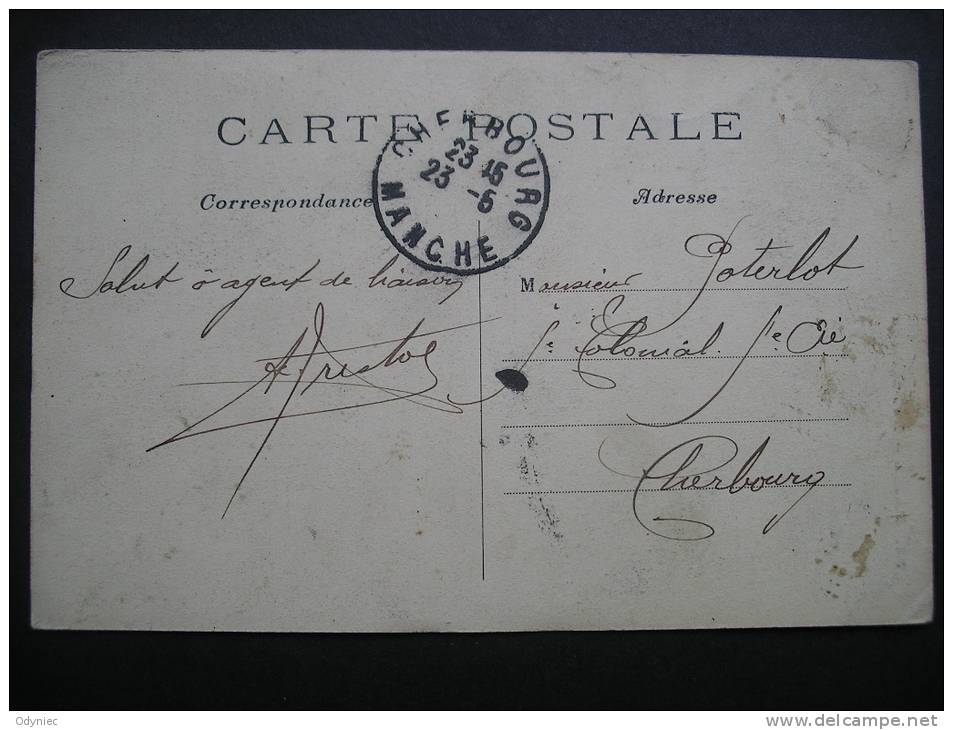 CARTE POSTALE
CHERBOURG
23 16
23 -6
MANCHE
Correspondance
Adresse
Salut à agent de liaison
Monsieur Poterlot
Colonial Cie
Cherbourg
Odyniec
www.delcampe.net